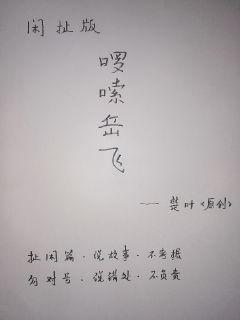 闲扯版
啰嗦岳飞
—— 楚叶《原创》
扯闲篇·说故事·不考据
勿对号·说错处·不负责